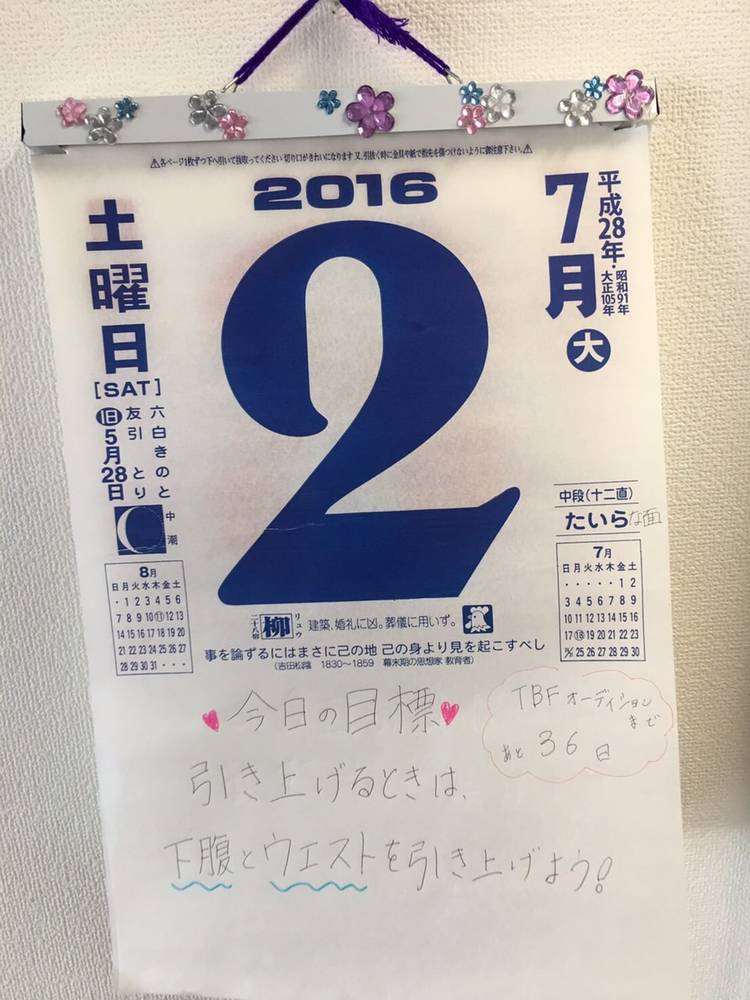 ⚠各ページ1枚ずつ下へ引いて抜取ってください 切り口がきれいになります 又、引抜く時に金具や紙で指先を傷つけないように御注意下さい。⚠
2016
7月
大
平成28年・昭和91年
大正105年
土曜日
[SAT]
六白きのと
友引 とり
旧5月28日
中潮
2
中段(十二直)
たいらな面
8月
日月火水木金土
・ 1 2 3 4 5 6
7 8 9 10 11 12 13
14 15 16 17 18 19 20
21 22 23 24 25 26 27
28 29 30 31 ・ ・ ・
7月
日月火水木金土
・ ・ ・ ・ ・ 1 2
3 4 5 6 7 8 9
10 11 12 13 14 15 16
17 18 19 20 21 22 23
24/31 25 26 27 28 29 30
二十八宿 柳 リュウ 建築、婚礼に凶。葬儀に用いず。
事を論ずるにはまさに己の地 己の身より見を起こすべし
(吉田松陰 1830〜1859 幕末期の思想家 教育者)
TBFオーディション
まで
あと 36日
今日の目標
引き上げるときは、
下腹とウエストを引き上げよう!